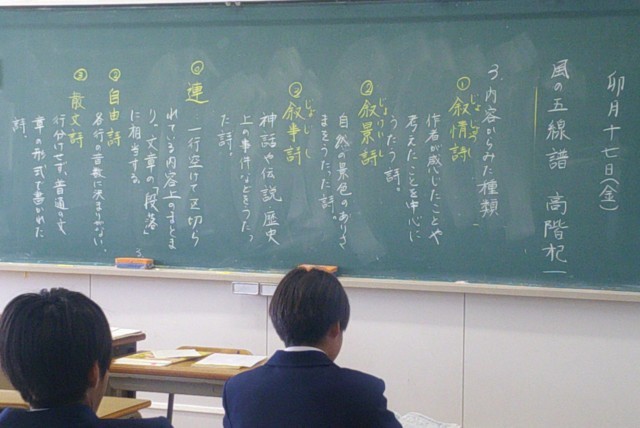 卯月十七日(金)
風の五線譜 高階杞一
3.内容からみた種類
①叙情詩
じょじょうし
作者が感じたことや
考えたことを中心に
うたう詩。
②叙景詩
じょけいし
自然の景色のありさ
まをうたった詩。
③叙事詩
じょじし
神話や伝説、歴史
上の事件などをうたっ
た詩。
◎連
一行空けて区切ら
れている内容上のまとま
り。文章の「段落」
に相当する。
②自由詩
各行の音数に決まりがない。
③散文詩
行分けせず、普通の文
章の形式で書かれた
詩。